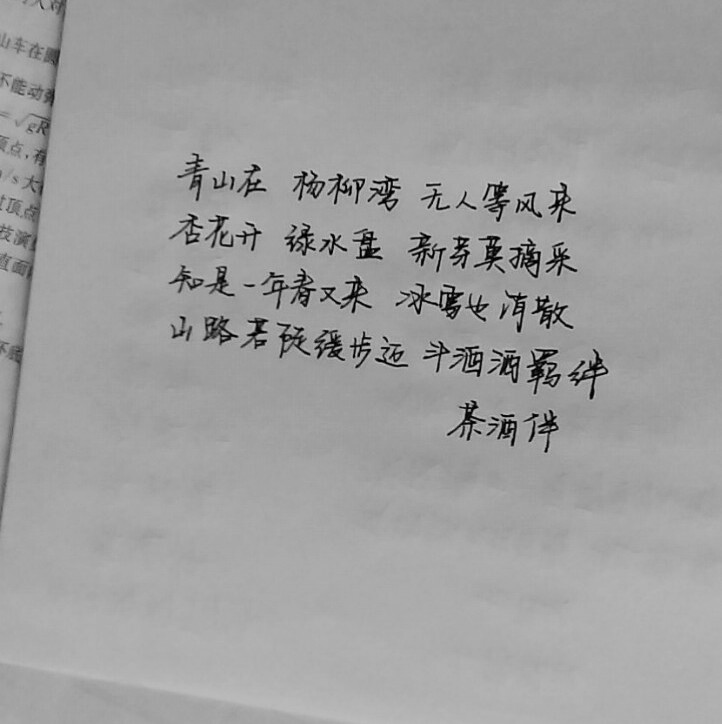 人对
山车在圆
不能动
=√gR
顶点,有
m/s大
过顶点
技演
直面
青山在 杨柳湾 无人等风来
杏花开 绿水盘 新芽莫摘采
知是一年春又来 冰雪也消散
山路若陡缓步迈 斗酒洒羁绊
茶酒伴